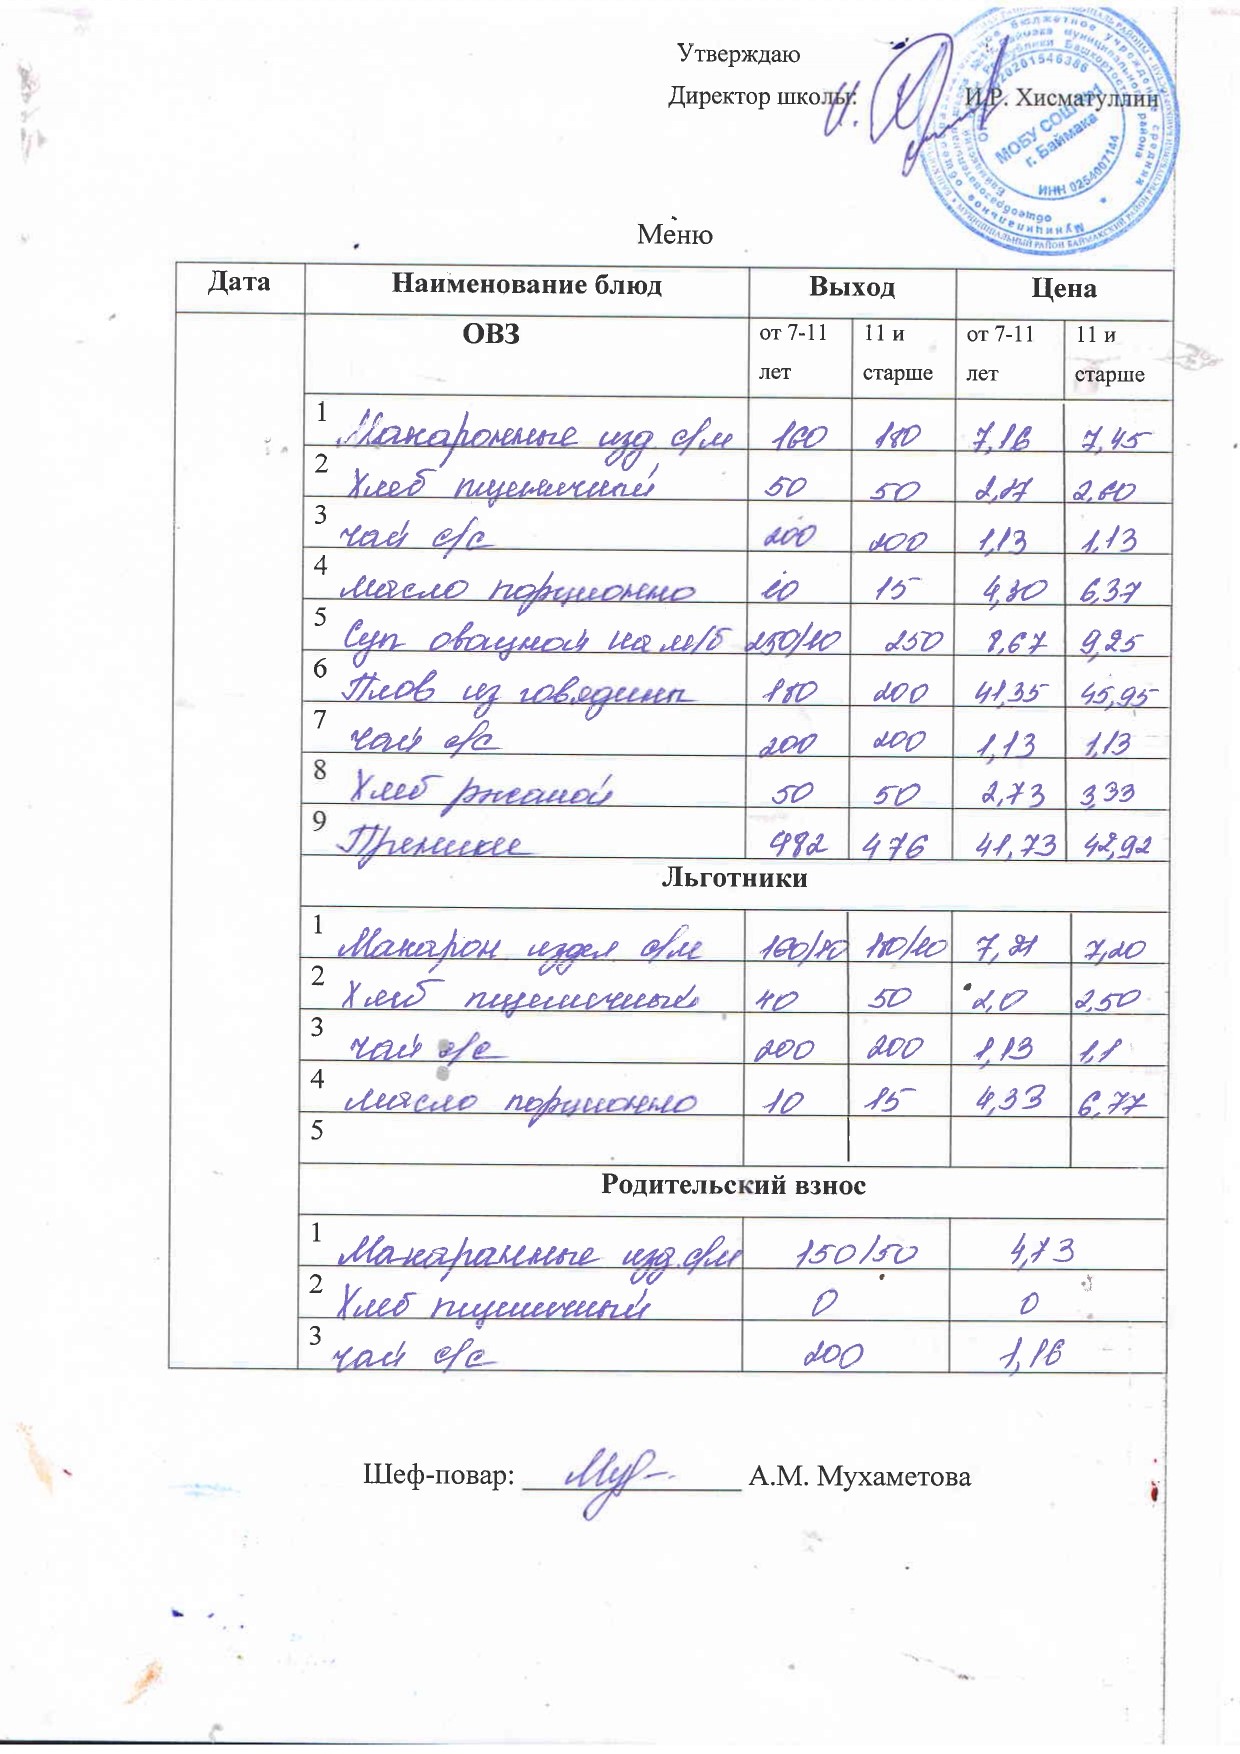 Утверждаю
Директор школы: И.Р. Хисматуллин
МОБУ СОШ №1
г. Баймака
ИНН 0254007144
Меню
Дата Наименование блюд Выход Цена
ОВЗ от 7-11 лет 11 и старше от 7-11 лет 11 и старше
1 Макаронные изд с/м 160 180 7,16 7,45
2 Хлеб пшеничный 50 50 2,17 2,60
3 чай с/с 200 200 1,13 1,13
4 масло порционно 10 15 4,30 6,37
5 Суп овощной на м/б 250/10 250 8,67 9,25
6 Плов из говядины 180 200 41,35 45,95
7 чай с/с 200 200 1,13 1,13
8 Хлеб ржаной 50 50 2,73 3,33
9 482 476 41,73 42,92
Льготники
1 Макарон издел с/м 160/10 180/10 7,21 7,20
2 Хлеб пшеничный 40 50 2,0 2,50
3 чай с/с 200 200 1,13 1,1
4 масло порционно 10 15 4,33 6,77
5
Родительский взнос
1 Макаронные изд с/м 150/50 4,13
2 Хлеб пшеничный 0 0
3 чай с/с 200 1,16
Шеф-повар: А.М. Мухаметова